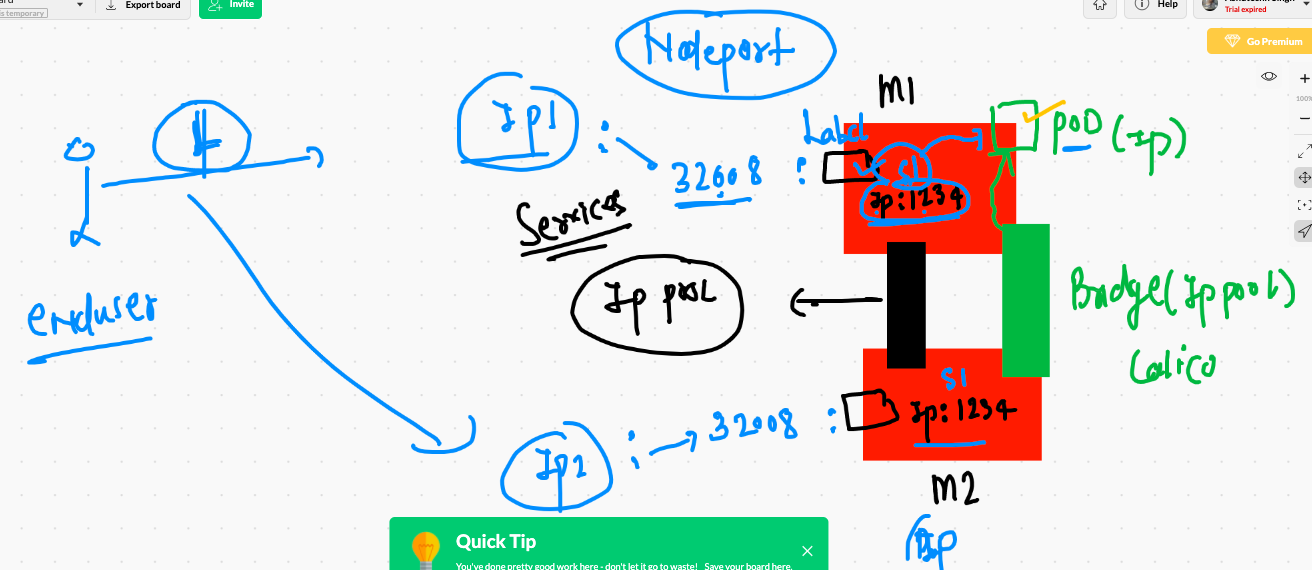 is temporary
Export board
Invite
Help
Trial expired
Go Premium
100%
Nodeport
M1
Ip1
:
32008
:
Label
S1
Ip:1234
POD (Ip)
Services
Ip pool
Bridge (Ip pool)
Calico
enduser
S1
Ip2
:
32008
:
Ip:1234
M2
Ip
Quick Tip
You've done pretty good work here - don't let it go to waste! Save your board here.